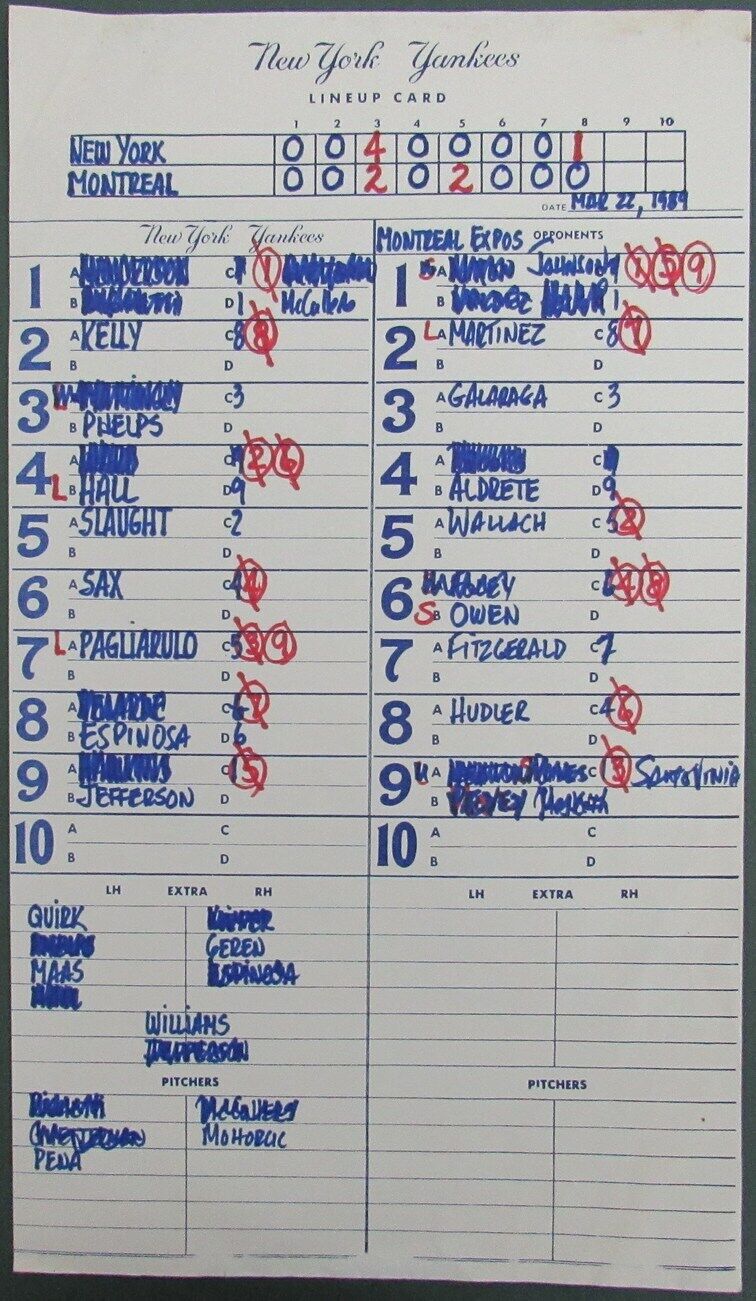 New York Yankees
LINEUP CARD
1 2 3 4 5 6 7 8 9 10
NEW YORK 0 0 4 0 0 0 0 1
MONTREAL 0 0 2 0 2 0 0 0
DATE MAR 22, 1989
New York Yankees
MONTREAL EXPOS OPPONENTS
1 A HENDERSON C 7 1
B D 1 McCullers
2 A KELLY C 8 8
B D
3 A C 3
L B PHELPS D
4 A C 9 2 6
L B HALL D 9
5 A SLAUGHT C 2
B D
6 A SAX C 4 4
B D
7 L A PAGLIARULO C 5 3 9
B D
8 A VELARDE C 6 7
B ESPINOSA D 6
9 A C 5
B JEFFERSON D
10 A C
B D
1 S A JOHNSON 9 1 5 9
B 1
2 L A MARTINEZ C 8 7
B D
3 A GALARAGA C 3
B D
4 A C 9
B ALDRETE D 9
5 A WALLACH C 5 2
B D
6 A C 6 4 8
S B OWEN D
7 A FITZGERALD C 7
B D
8 A HUDLER C 4 6
B D
9 A C 1 3 SANTOVINIA
B
10 A C
B D
LH EXTRA RH
QUIRK
GEREN
MAAS ESPINOSA
WILLIAMS
JEFFERSON
PITCHERS
McCULLERS
MOHORCIC
PENA
LH EXTRA RH
PITCHERS